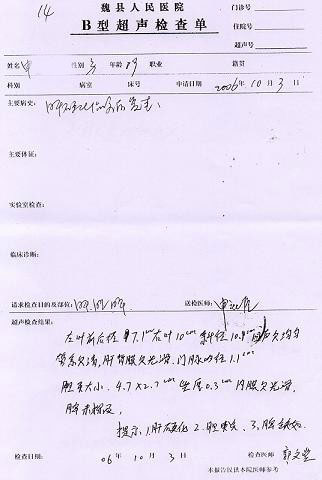 14
魏县人民医院
B型超声检查单
门诊号
住院号
超声号
姓名 申 性别 男 年龄 职业 籍贯
科别 病室 床号 申请日期 2006年10月3日
主要病史:
主要体征:
实验室检查:
临床诊断:
请求检查目的及部位: 送检医师:
超声检查结果:
左叶前后径 7.1cm 右叶10cm 斜径10.9cm 回声欠均匀
管系欠清,肝背膜欠光滑,门脉内径1.1cm
胆囊大小 4.7x2.7cm 壁厚0.3cm 内膜欠光滑,
提示:1.肝硬化 2.胆囊炎 3.
检查日期: 06年10月3日 检查医师 郭文
本报告仅供本院医师参考